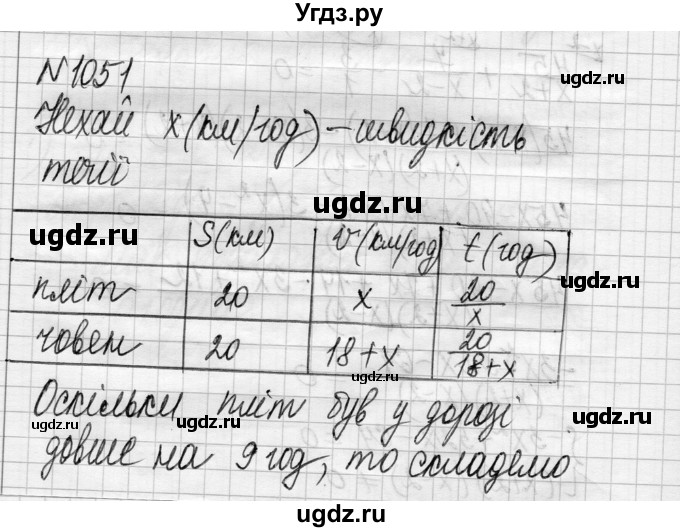 Угдз.ру
N1051
ugdz.ru
Нехай x(км/год) – швидкість
течії
ugdz.ru ugdz.ru
ugdz.ru S(км) V(км/год) t(год)
пліт 20 x 20/x
човен 20 18+x 20/18+x
Оскільки пліт був у дорозі
ugdz.ru ugdz.ru ugdz.ru
довше на 9 год, то складемо
ugdz.ru